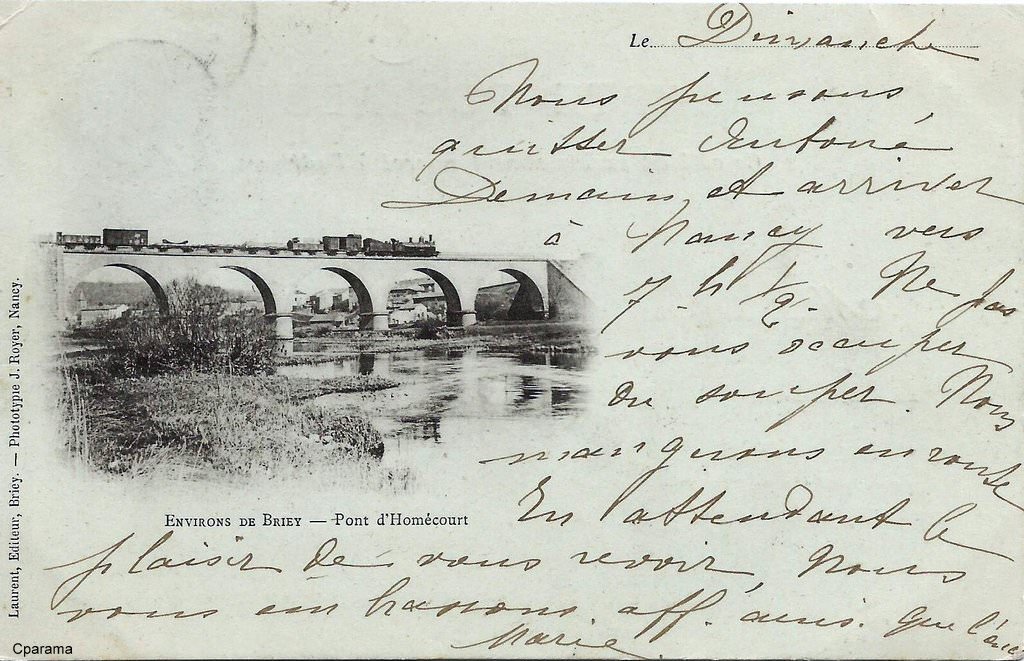 Le Dimanche
Nous pensons
quitter Antoné
Demain et arriver
à Nancy vers
7 h ½. Ne pas
vous occuper
du souper. Nous
mangerons en route
En attendant le
plaisir de vous revoir, Nous
vous embrassons aff. ainsi que l'
Marie
ENVIRONS DE BRIEY — Pont d'Homécourt
Laurent, Editeur, Briey. — Phototypie J. Royer, Nancy.
Cparama